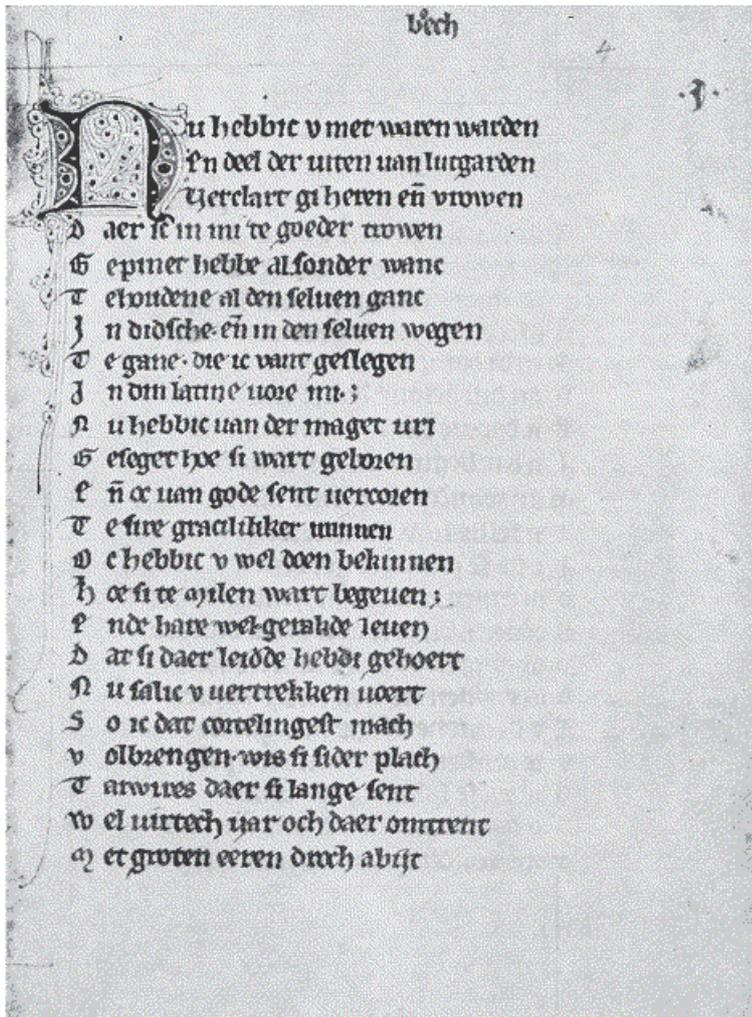 bͦch
4
·J·
Nu hebbic v met waren warden
En deel der uiten uan lutgarden
Verclart gi heren en̄ vrowen
D aer ic in mi te goeder trowen
G epinet hebbe al sonder wanc
T ehoudene al den seluen ganc
J n didsche· en̄ in den seluen wegen
T e gane· die ic vant geslegen
J n din latine uore mi· ;
N u hebbic uan der maget uri
G eseget hoe si wart geboren
E n̄ oc uan gode sent uercoren
T e sire graciliker minnen
O c hebbic v wel doen bekinnen
H oe si te milen wart begeuen ;
E nde hare wel·getakde leuen
D at si daer leidde hebdi gehoert
N u salic v uertrekken uoert
S o ic dat cortelingest mach
V olbrengen· wis si sider plach
T atwires daer si lange sent
W el uirtech yar och daer omtrent
M et groten eeren droch abijt